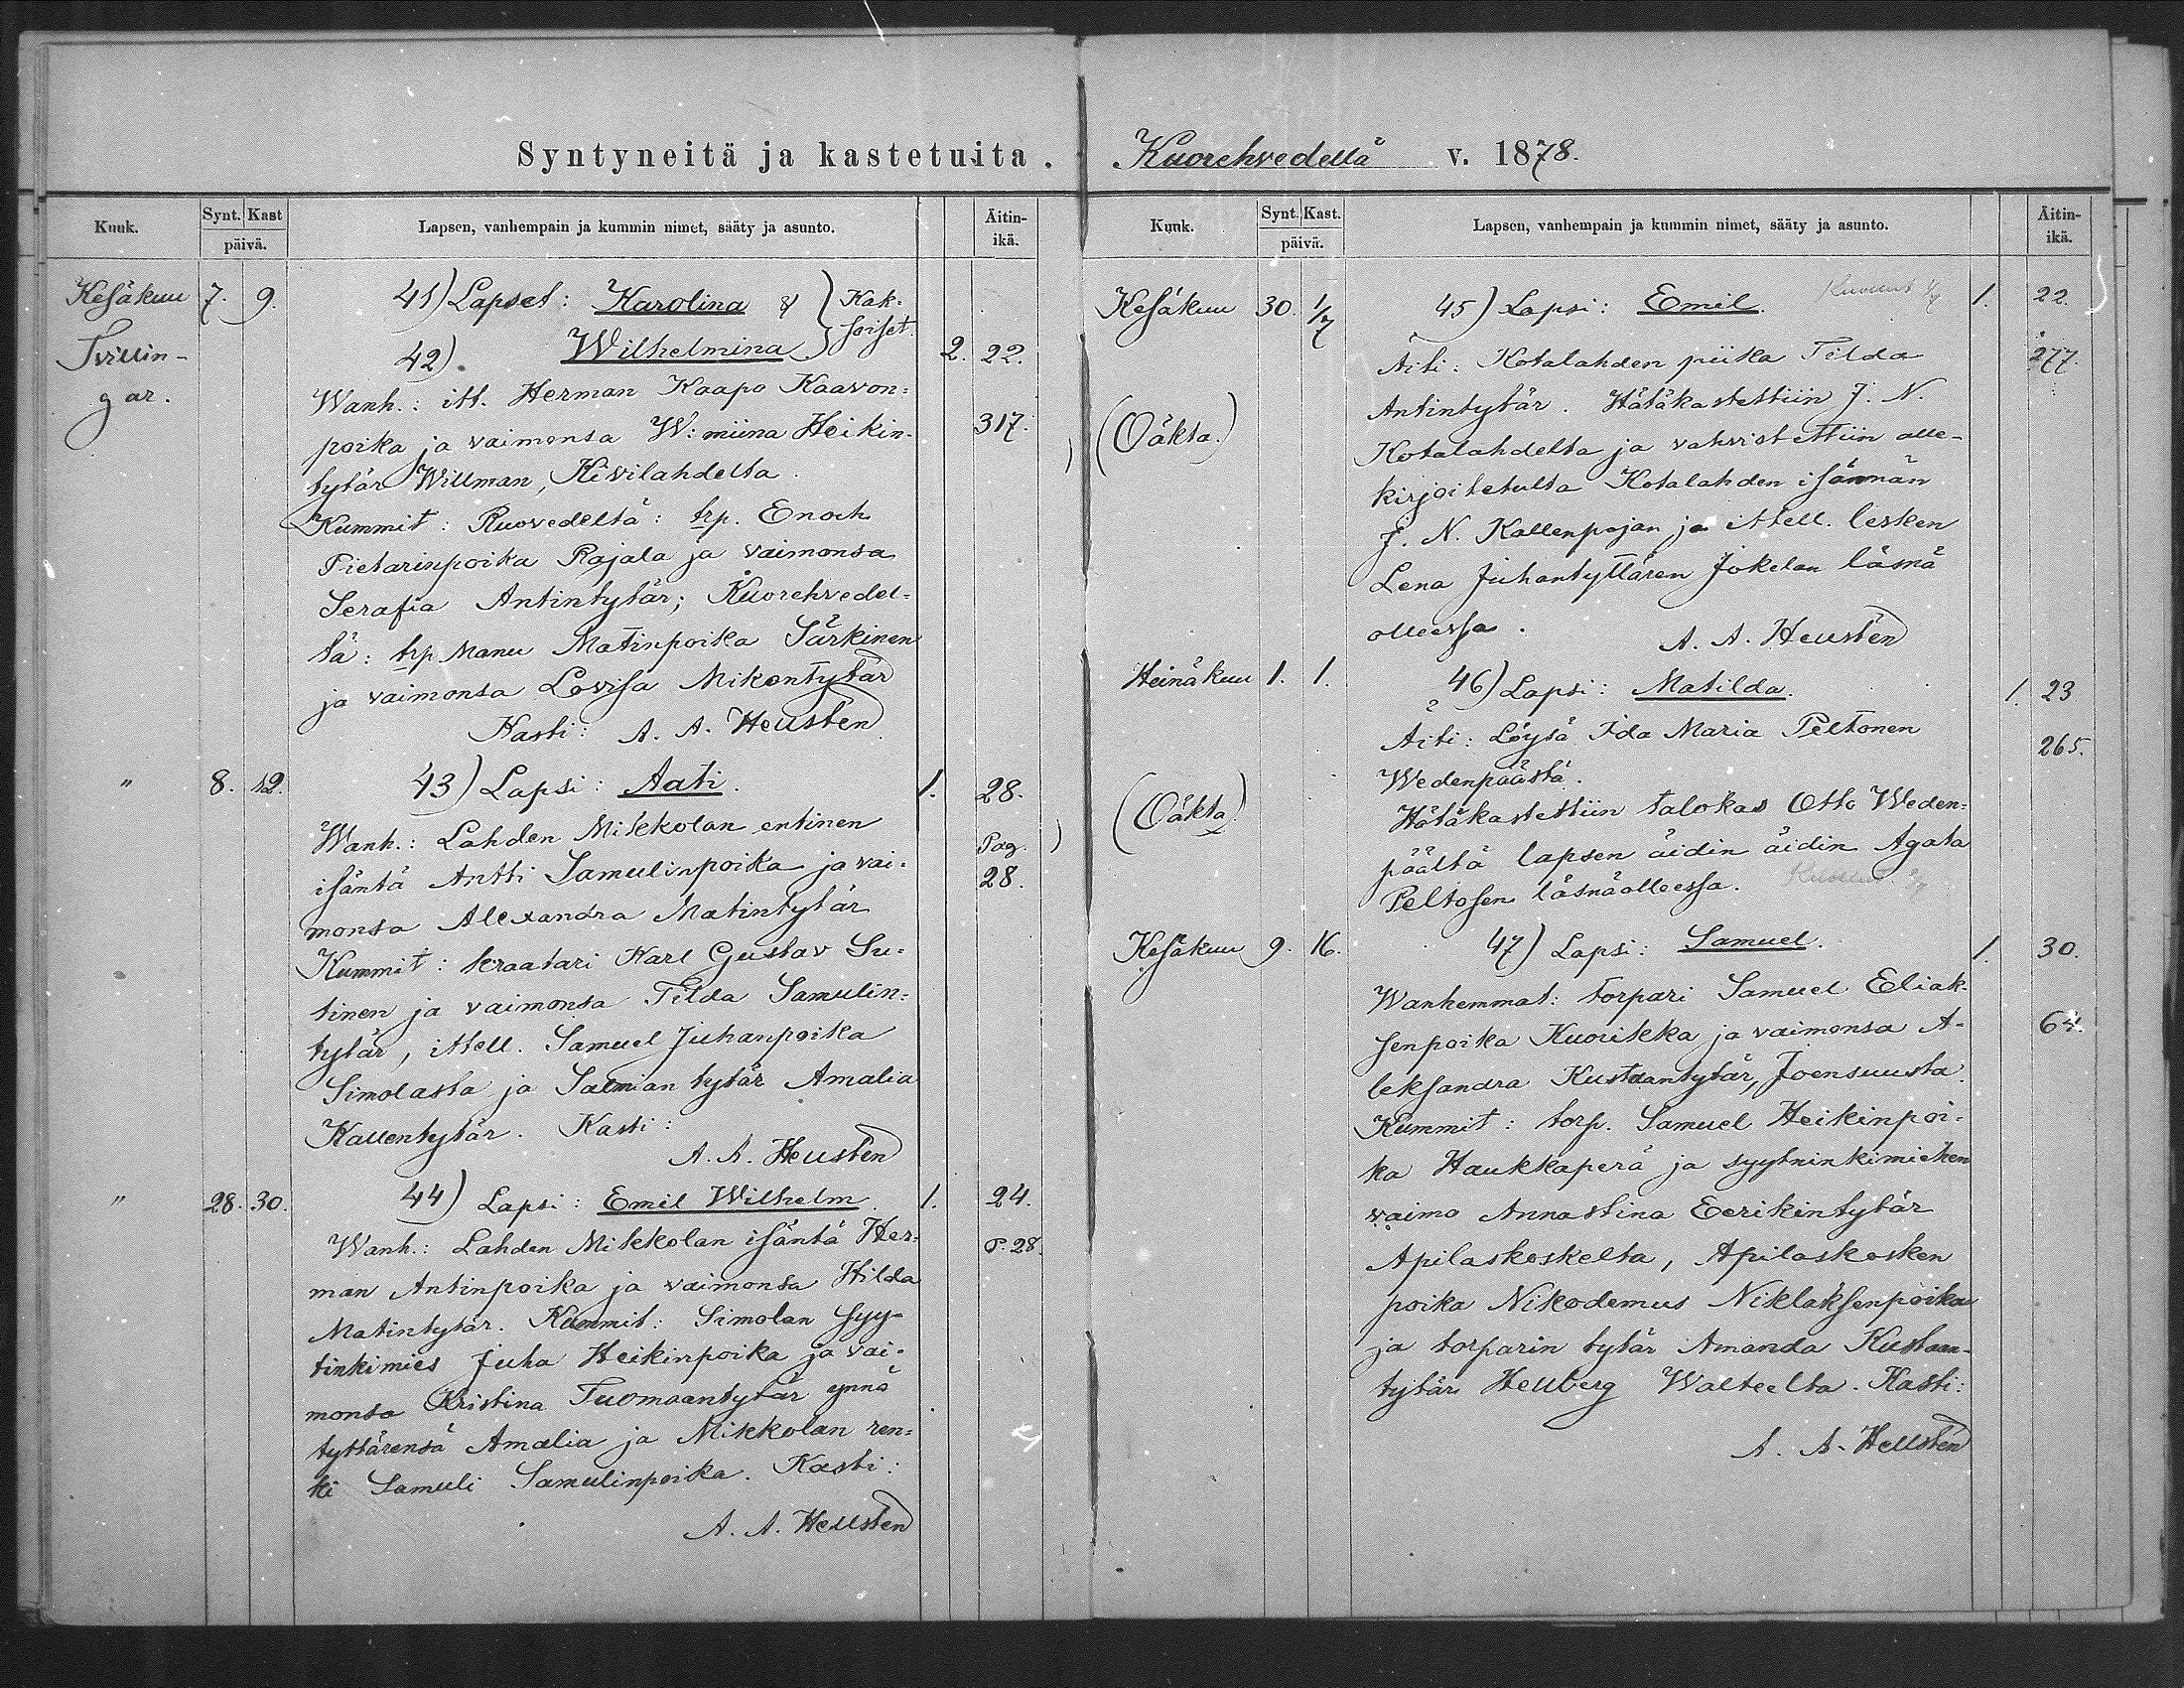 Syntyneitä ja kastetuita.
Kuuk. Synt. Kast päivä. Lapsen, vanhempain ja kummin nimet, sääty ja asunto. Äitin-ikä.
Kesäkuu 7. 9. 41) Lapset: Karolina & } Kak-
Tvillin- 42) Wilhelmina } soiset. 2. 22.
gar. Wanh.: itt. Herman Kaapo Kaavon-
poika ja vaimonsa W:miina Heikin- 317.
tytär Willman, Kivilahdelta.
Kummit: Ruovedeltä: trp. Enoch
Pietarinpoika Rajala ja vaimonsa
Serafia Antintytär; Kuorehvedel-
tä: trp Manu Matinpoika Särkinen
ja vaimonsa Lovisa Mikontytär
Kasti: A. A. Hellstén
" 8. 12. 43) Lapsi: Aati. 1. 28.
Wanh.: Lahden Mikkolan entinen Pag.
isäntä Antti Samulinpoika ja vai- 28.
monsa Alexandra Matintytär
Kummit: kraatari Karl Gustav Su-
tinen ja vaimonsa Tilda Samulin-
tytär, ittell. Samuel Juhanpoika
Simolasta ja Salmian tytär Amalia
Kallentytär. Kasti:
A. A. Hellstén
" 28. 30. 44) Lapsi: Emil Wilhelm. 1. 24.
Wanh.: Lahden Mikkolan isäntä Her- P. 28.
man Antinpoika ja vaimonsa Hilda
Matintytär. Kummit: Simolan Syy-
tinkimies Juha Heikinpoika ja vai-
monsa Kristina Tuomaantytär ynnä
tyttärensä Amalia ja Mikkolan ren-
ki Samuli Samulinpoika. Kasti:
A. A. Hellstén
Kuorehvedellä v. 1878.
Kuuk. Synt. Kast. päivä. Lapsen, vanhempain ja kummin nimet, sääty ja asunto. Äitin-ikä.
Kesäkuu 30. 1/7 45) Lapsi: Emil. Kuollut 1. 22.
Äiti: Kotalahden piika Tilda 277.
Antintytär. Hätäkastettiin J. N.
(Oäkta.) Kotalahdelta ja vahvistettiin alle-
kirjoitetulta Kotalahden isännän
J. N. Kallenpojan ja ittell. lesken
Lena Juhantyttären Jokelan läsnä
olleessa. A. A. Hellstén
Heinäkuu 1. 1. 46) Lapsi: Matilda. 1. 23
Äiti: Löysä Ida Maria Peltonen 265.
Wedenpäästä.
(Oäkta) Hätäkastettiin talokas Otto Weden-
päältä lapsen äidin äidin Agata
Peltosen läsnäolleessa. Kuollut
Kesäkuu 9. 16. 47) Lapsi: Samuel. 1. 30.
Wanhemmat: torpari Samuel Eliak-
senpoika Kuorikka ja vaimonsa A- 64.
leksandra Kustaantytär, Joensuusta.
Kummit: torp. Samuel Heikinpoi-
ka Haukkaperä ja syytninkimiehen
vaimo Annastina Eerikintytär
Apilaskoskelta, Apilaskosken
poika Nikodemus Niklaksenpoika
ja torparin tytär Amanda Kustaan-
tytär Hellberg Walteelta. Kasti:
A. A. Hellstén